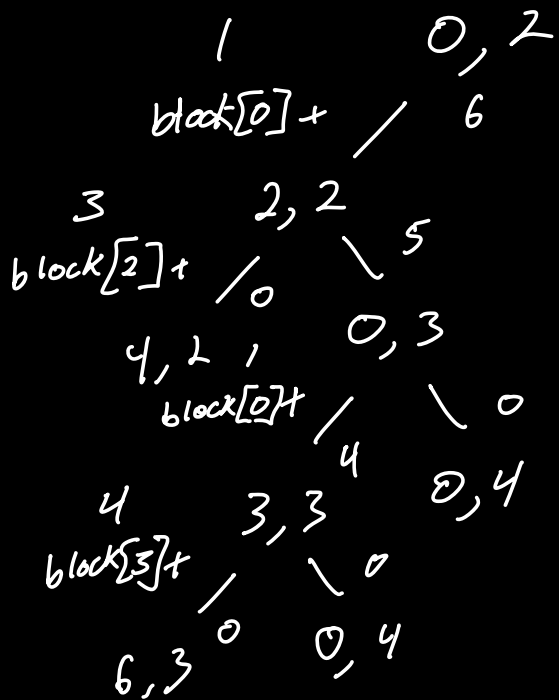 1 0, 2
block[0] + 6
3 2, 2 5
block[2] + 0
0, 3
4, 2 1
block[0] + 0
4 0, 4
4 3, 3
block[3] + 0
0
6, 3 0, 4